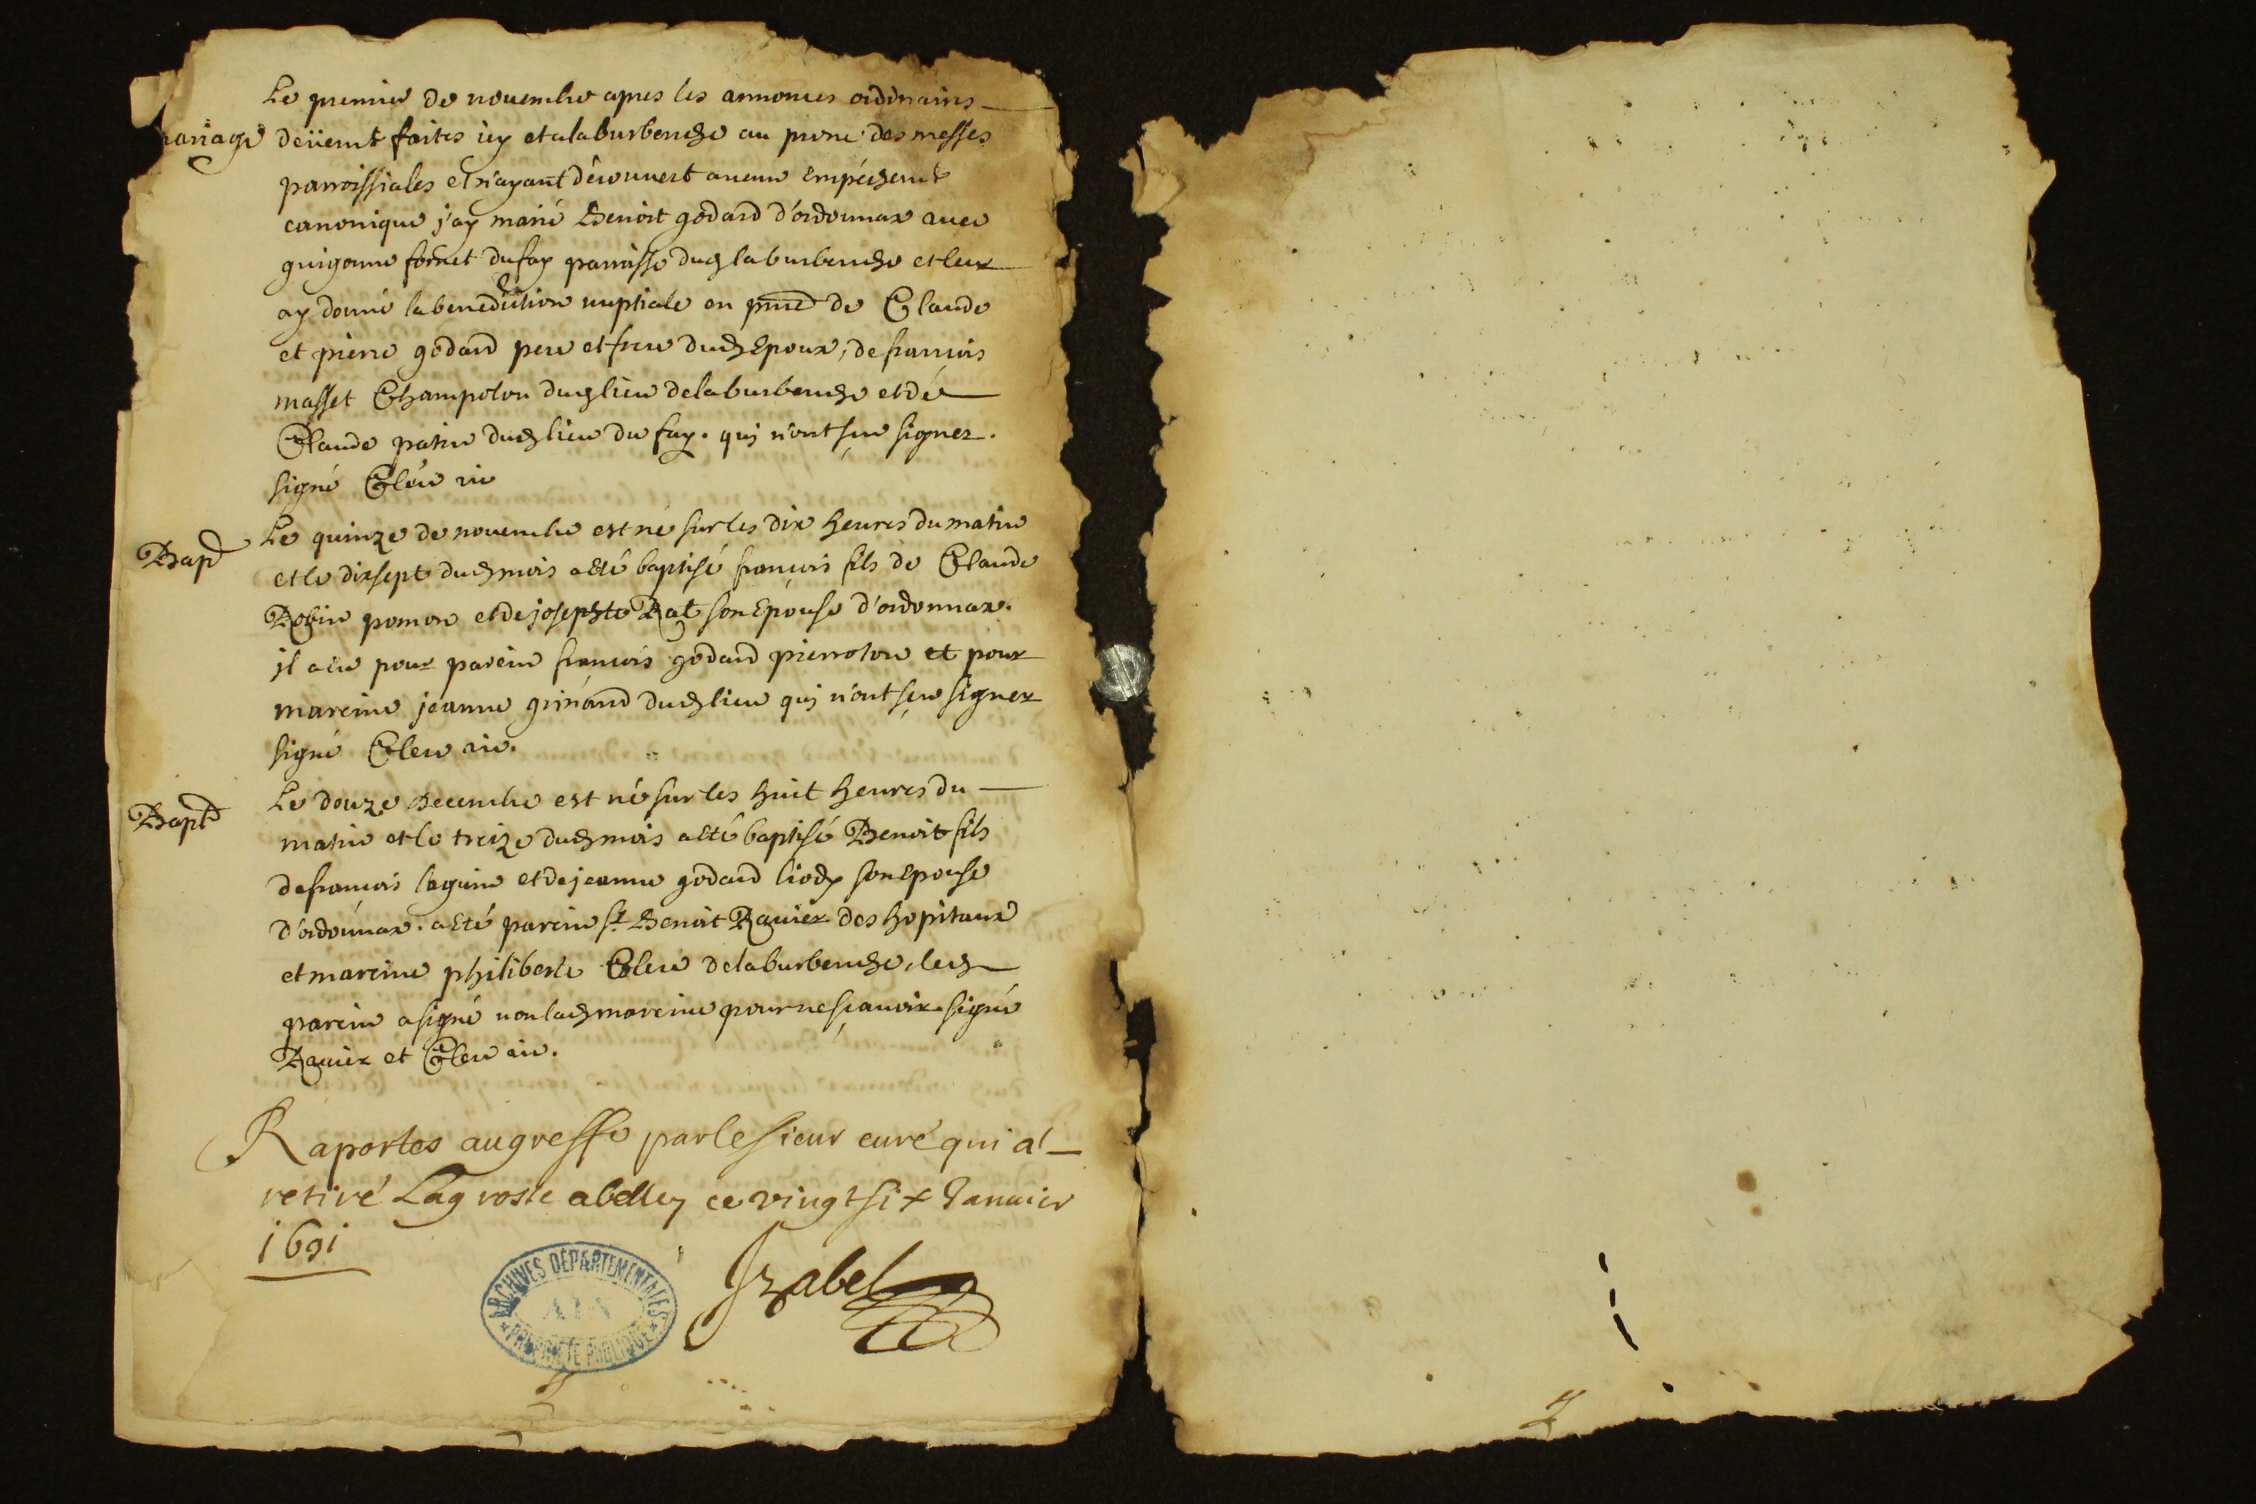 Le premier de novembre apres les annonces ordinaires
mariage deüemt faites icy et a la burbenche au prone des messes
parroissiales et n'ayant découvert aucun empéchemt
canonique j'ay marié Benoit godard d'ordonnax avec
guigonne fornet du fay parroisse dud la burbenche et leur
ay donné la benediction nuptiale en pnce de Claude
et pierre godard pere et frere dud Epoux, de francois
masset Champolon dud lieu de la burbenche et de
Claude patin dud lieu du fay. qui n'ont sçu signer.
signé Cleu
Bapt Le quinze de novembre est né sur les dix heures du matin
et le dix sept dud mois a eté baptisé francois fils de Claude
Robin pomon et de josephte Rat son Epouse d'ordonnax.
il a eu pour parein francois godard pierroton et pour
mareine jeanne grinand dud lieu qui n'ont sçu signer
signé Cleu
Bapt Le douze Decembre est né sur les huit heures du
matin et le treize dud mois a eté baptisé Benoit fils
de francois laguin et de jeanne godard liody son Epouse
d'ordonnax. a eté parein sr Benoit Ravier des hopitaux
et mareine philiberte Cleu de la burbenche, led
parein a signé non lad mareine pour ne sçavoir. signé
Ravier et Cleu
Raportes au greffe par le sieur curé qui a
retiré Lagrosse a belley ce vingt six Januier
1691
Izabel
ARCHIVES DÉPARTEMENTALES
AIN
PROPRIÉTÉ PUBLIQUE